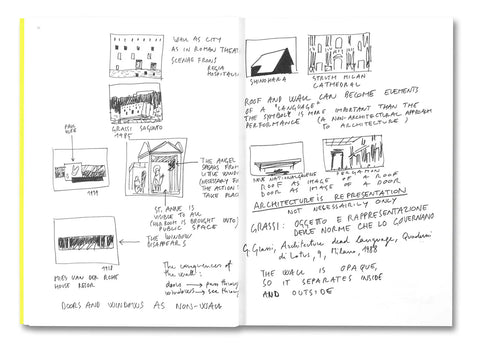 WALL AS CITY
AS IN ROMAN THEATRE
SCENAE FRONS
REGIA
HOSPITALIA
GRASSI SAGUNTO
1985
PAUL
KLEE
THE ANGEL
SPEAKS FROM
LITTLE WINDOW
(NECESSARY FOR
THE ACTION
TAKE PLACE
ST. ANNE IS
VISIBLE TO ALL
(THE ROOM IS BROUGHT INTO)
PUBLIC SPACE
THE WINDOW
DISAPPEARS
MIES VAN DER ROHE
HOUSE
The consequences of
the wall:
doors → pass through
windows → see through
DOORS AND WINDOWS AS NON-WALL
SHINOHARA
MILAN
CATHEDRAL
ROOF AND WALL CAN BECOME ELEMENTS
OF A "LANGUAGE"
THE SYMBOL IS MORE IMPORTANT THAN THE
PERFORMANCE (A NON-ARCHITECTURAL APPROACH
TO ARCHITECTURE)
PERGAMON
ROOF AS IMAGE OF A ROOF
DOOR AS IMAGE OF A DOOR
ARCHITECTURE IS REPRESENTATION
NOT NECESSAIRILY ONLY
GRASSI: OGGETTO E RAPPRESENTAZIONE
DELLE NORME CHE LO GOVERNANO
G. Grassi, Architecture dead language, Quaderni
di Lotus, 9, Milano, 1988
THE WALL IS OPAQUE,
SO IT SEPARATES INSIDE
AND OUTSIDE